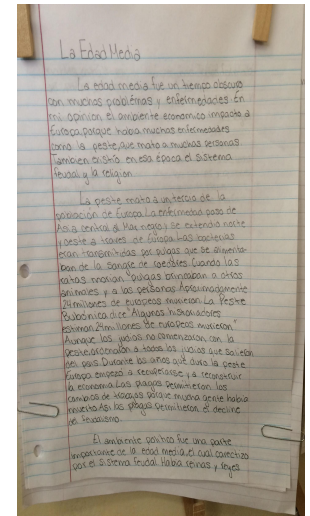 La Edad Media
La edad media fue un tiempo obscuro
con muchos problemas y enfermedades. En
mi opinion el ambiente economico impacto a
Europa, porque habia muchos enfermedades
como la peste, que mato a muchas personas
Tambien existio en esa época el sistema
feudal y la religion
La peste mato a un tercio de la
poblacion de Europa. La enfermedad paso de
Asia central a Mar negro y se extendio norte
y oeste a traves de Europa. Las bacterias
eran transmitidas por pulgas que se alimenta-
ban de la sangre de roedores. Cuando las
ratas morian pulgas brincaban a otros
animales y a las personas. Aproximadamente
24 millones de europeos murieron. La Peste
Bubónica dice "Algunos historiadores
estiman 24 millones de europeos murieron"
Aunque los judios no comenzaron con la
peste, a todos los judios que salieran
del pais. Durante los años que duro la peste
Europa empezo a recuperarse y a reconstruir
la economia. Las plagas permitieron los
cambios de trabajos porque mucha gente habia
muerto. Asi las plagas permitieron el decline
de Feudalismo.
El ambiente politico fue una parte
importante de la edad media, el cual
por el sistema feudal. Habia reinas y reyes